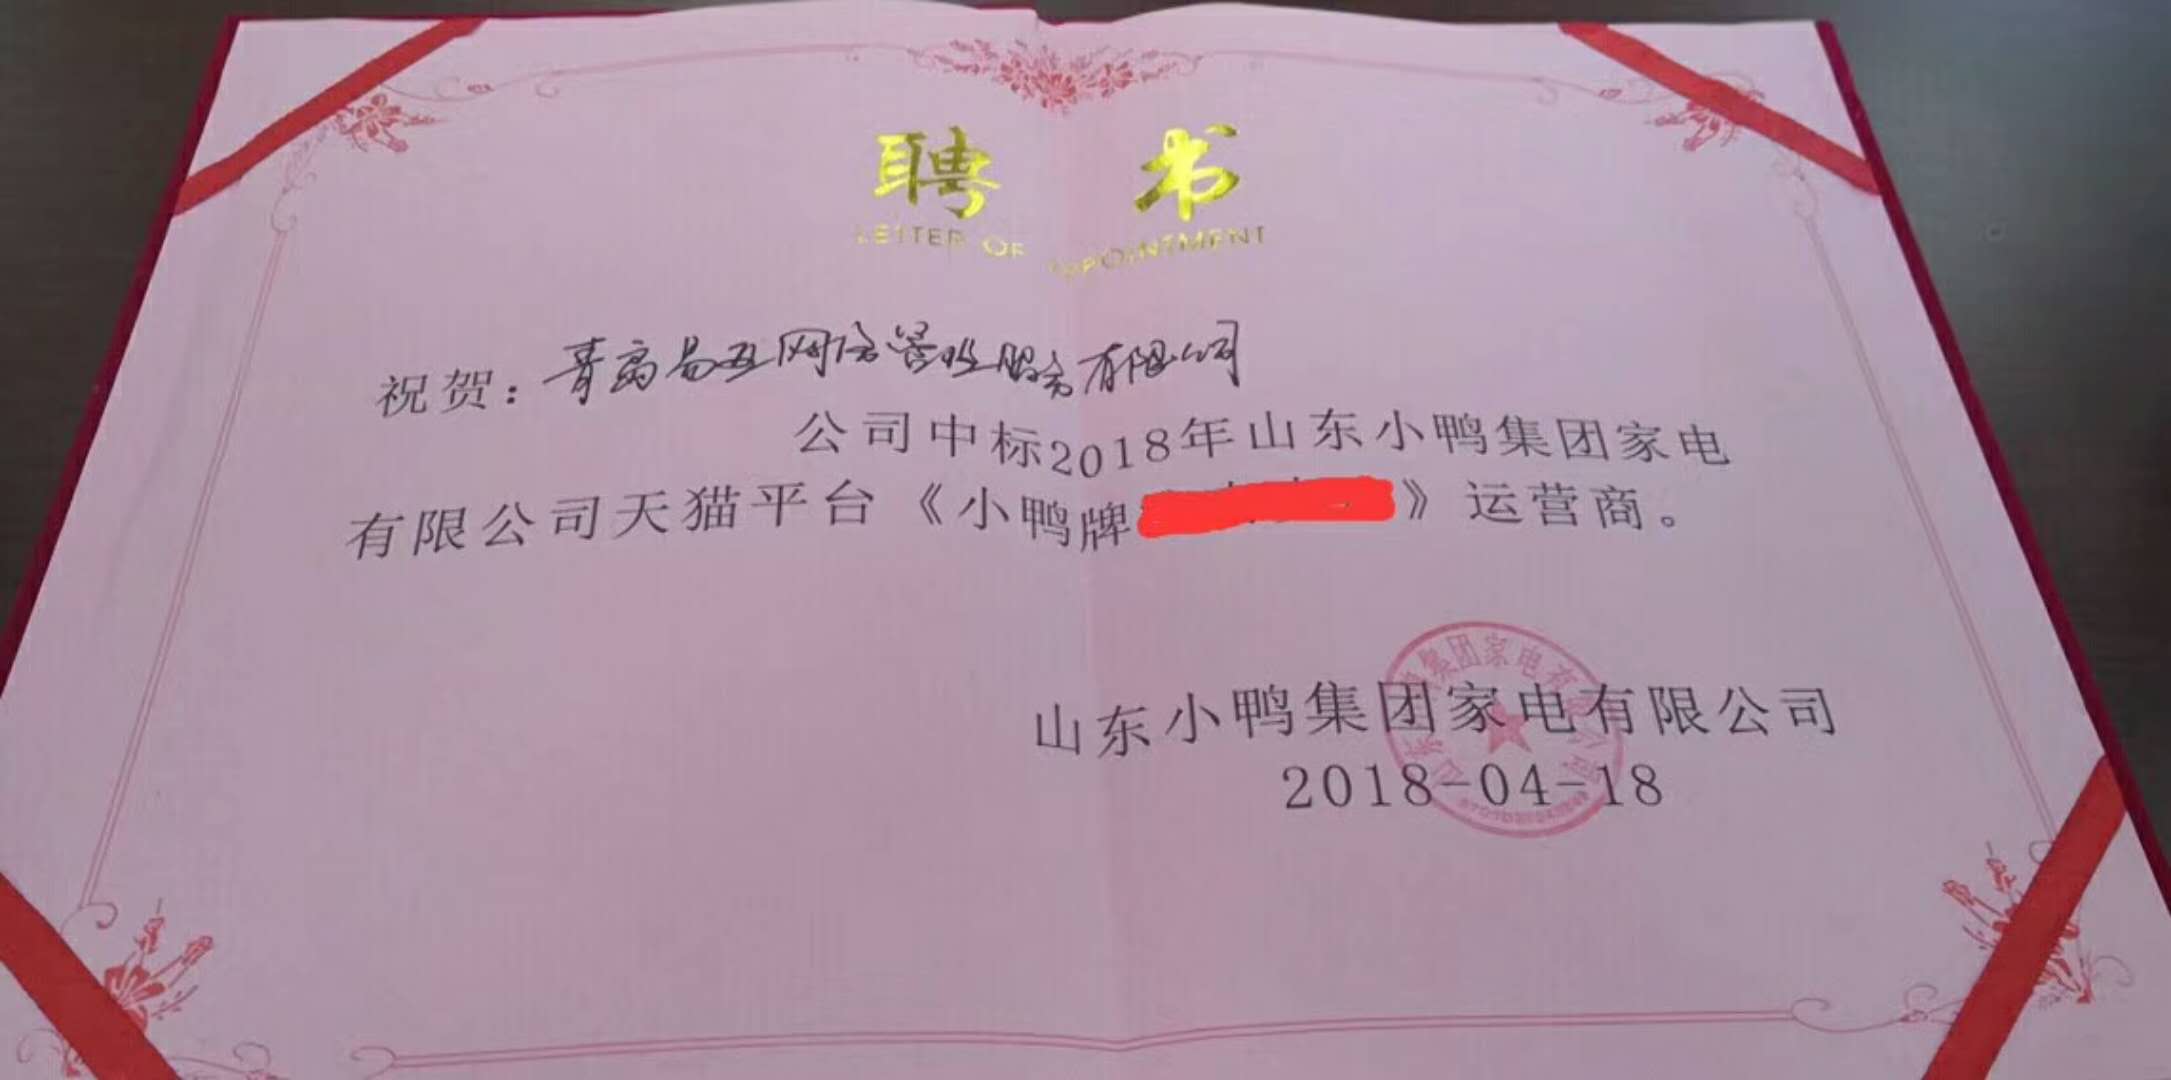 聘 书
LETTER OF APPOINTMENT
祝贺：青岛易亚网信营业服务有限公司
公司中标2018年山东小鸭集团家电
有限公司天猫平台《小鸭牌》运营商。
山东小鸭集团家电有限公司
2018-04-18
山东小鸭集团家电有限公司